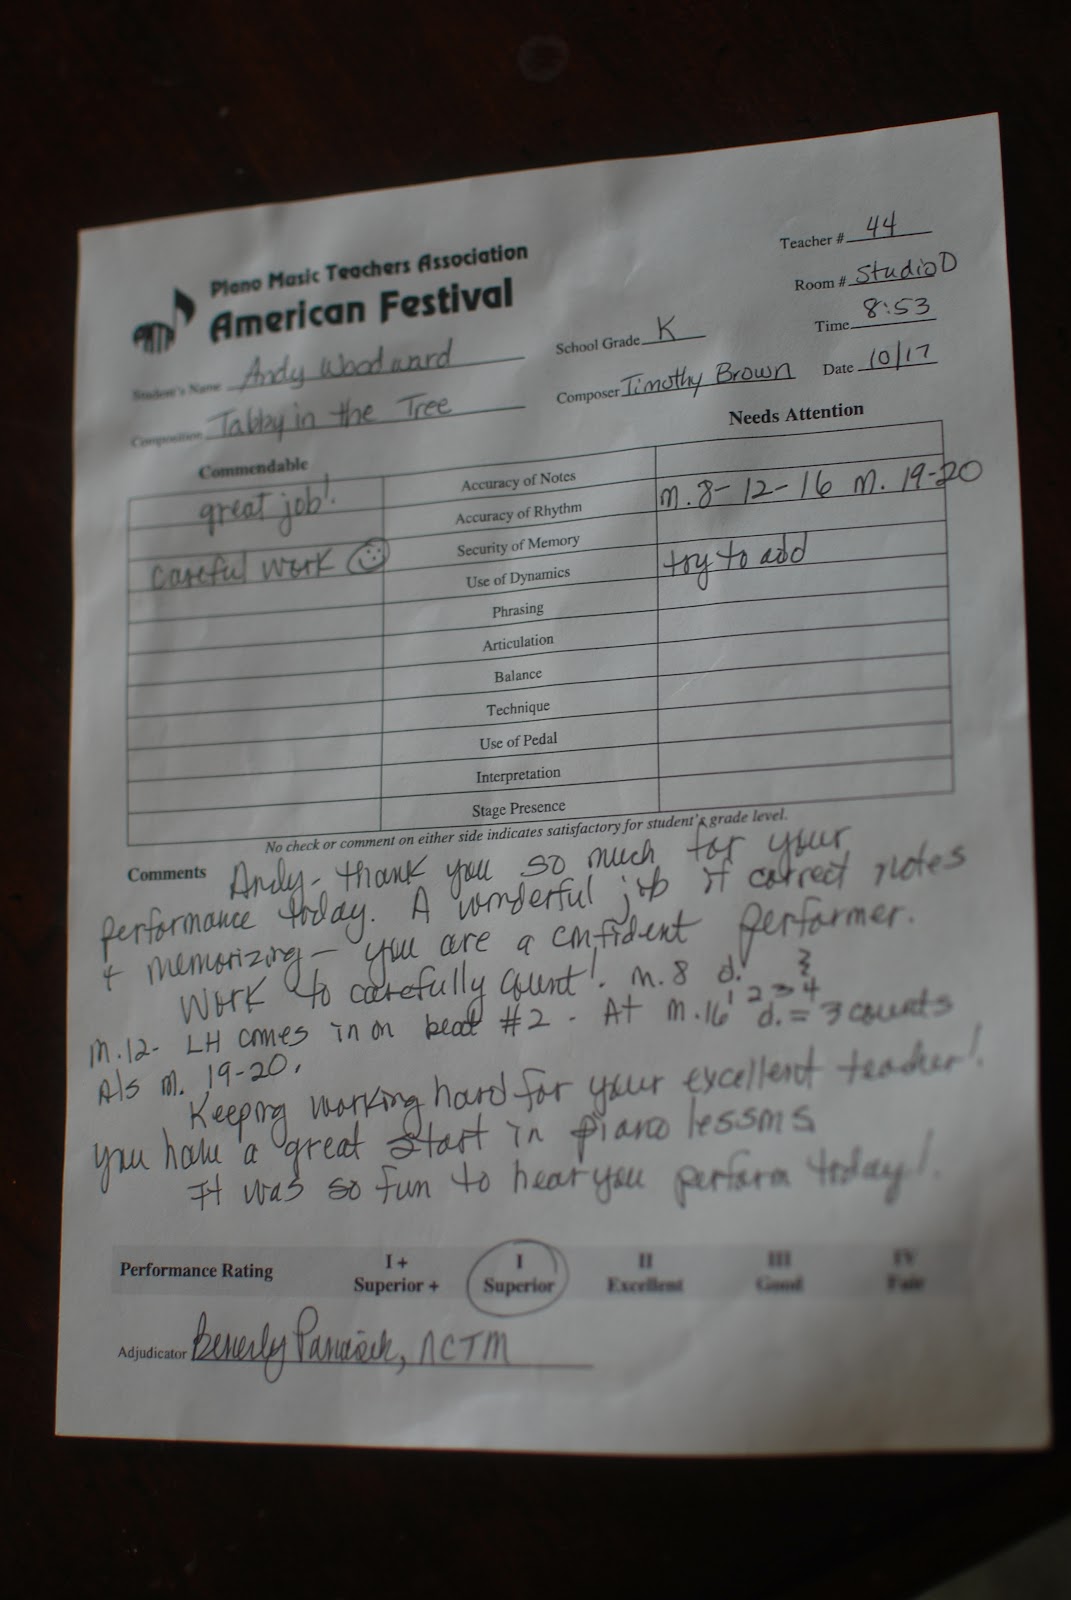 Piano Music Teachers Association
American Festival
Teacher # 44
Room # Studio D
Time 8:53
Date 10/17
Student's Name Andy Woodward
School Grade K
Composition Tabby in the Tree
Composer Timothy Brown
Commendable
Needs Attention
great job! Accuracy of Notes
Accuracy of Rhythm m. 8-12-16 m. 19-20
careful work Security of Memory
Use of Dynamics try to add
Phrasing
Articulation
Balance
Technique
Use of Pedal
Interpretation
Stage Presence
No check or comment on either side indicates satisfactory for student's grade level.
Comments Andy- thank you so much for your
performance today. A wonderful job of correct notes
+ memorizing - you are a confident performer.
Work to carefully count! m. 8 d. 𝄽
1 2 3 4
m. 12- LH comes in on beat #2 - At m. 16 d. = 3 counts
Als m. 19-20.
Keeping working hard for your excellent teacher!
You have a great start in piano lessons
It was so fun to hear you perform today!
Performance Rating
I +
Superior +
I
Superior
II
Excellent
III
Good
IV
Fair
Adjudicator Beverly, NCTM